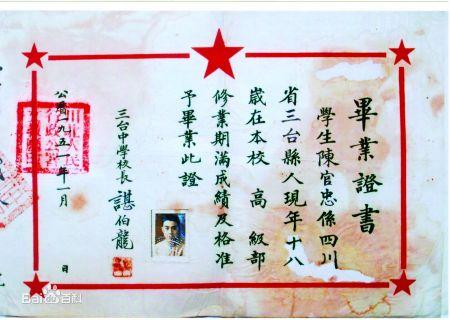 畢業證書
學生陳官忠係四川
省三台縣人現年十八
歲在本校 高級部
修業期滿成績及格准
予畢業此證
三台中學校長 諶伯龍
公曆一九五一年一月 日
Bai百科